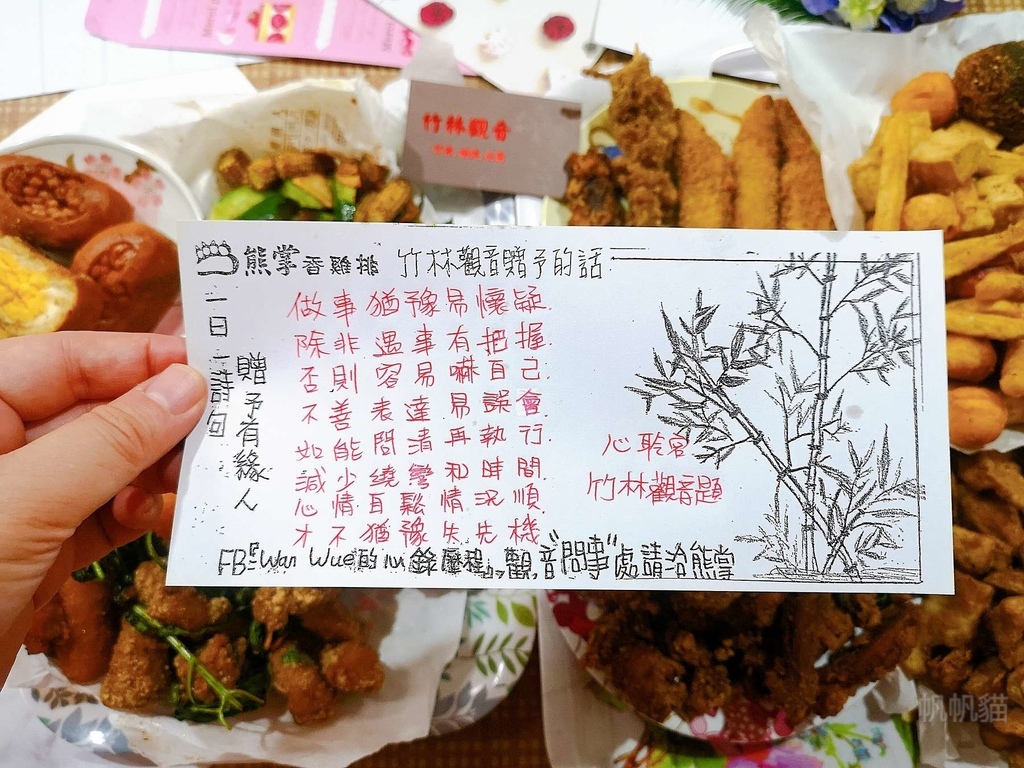 竹林觀音
熊掌香雞排 竹林觀音贈予的話
一日一詩句
贈予有緣人
做事猶豫易懷疑.
除非遇事有把握.
否則容易嚇自己.
不善表達易誤會.
如能問清再執行.
減少繞彎和時間.
心情自鬆情況順
才不猶豫失先機
心聆宮
竹林觀音題
FB:『Wan Wue的心錄歷程』觀音"問事"處請洽熊掌
帆帆貓